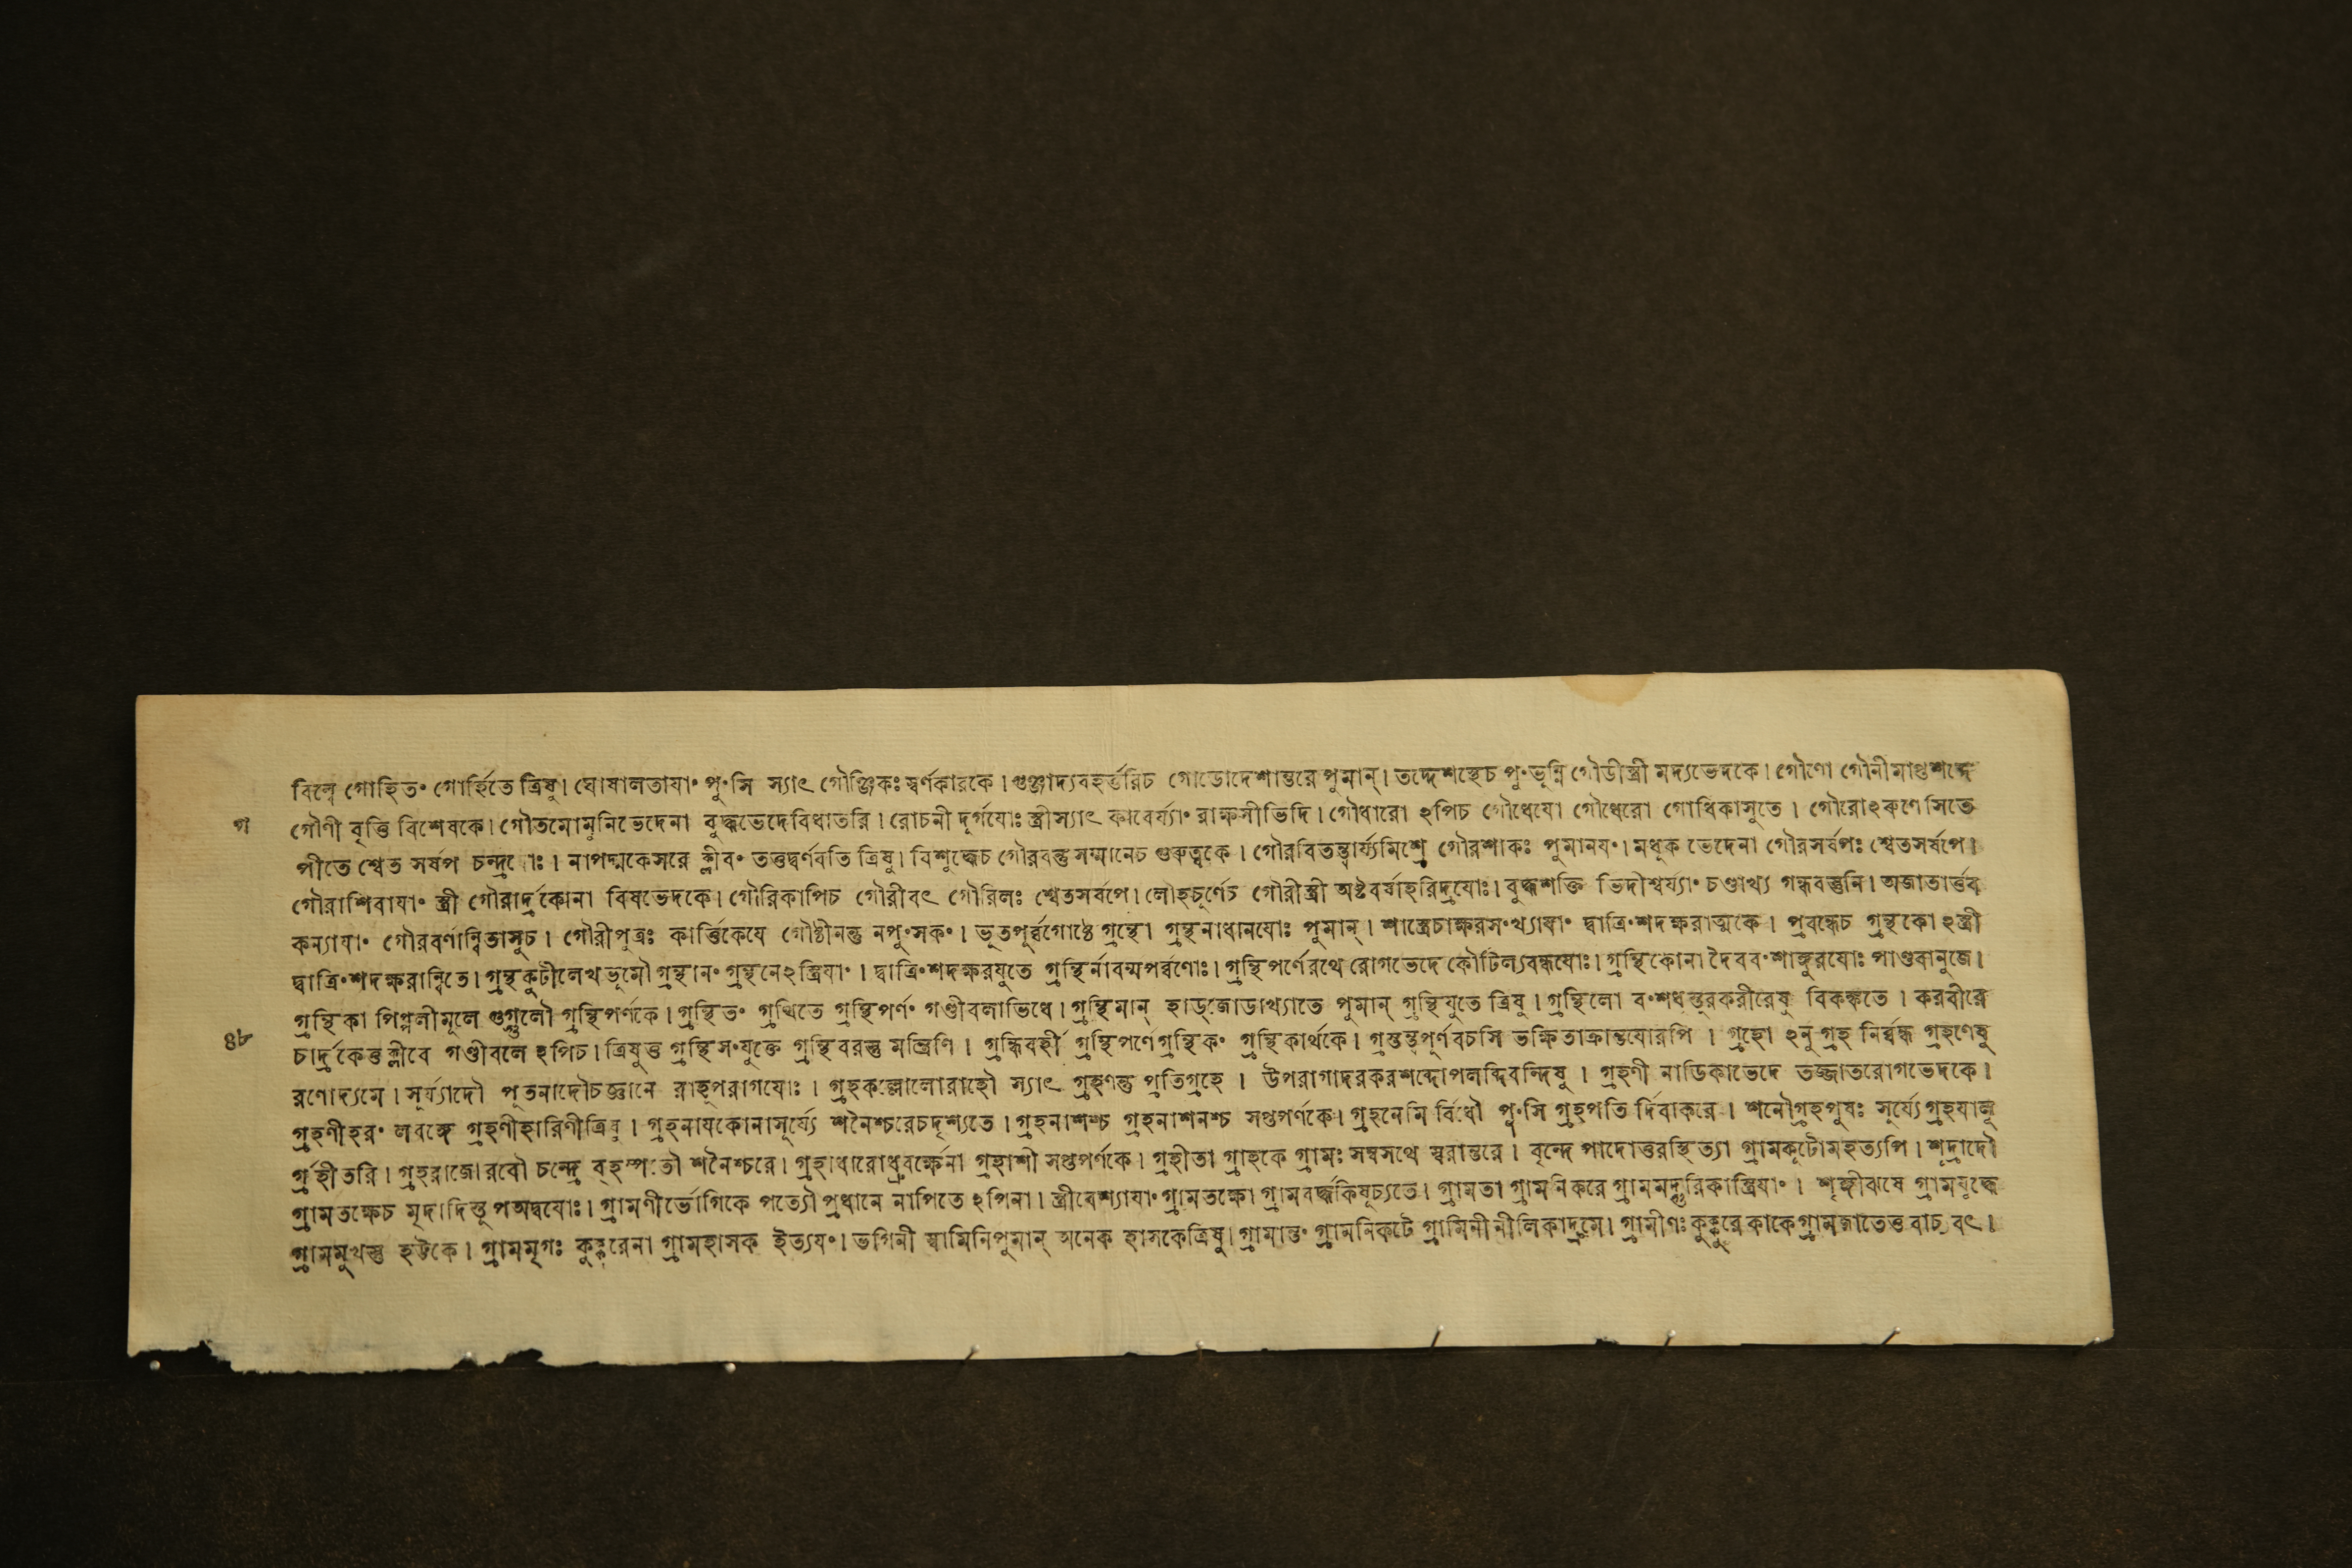 বিল্বে গোহিত° গোর্হিতে ত্রিষু। ঘোষালতাযা° পু°সি স্যাৎ গৌঞ্জিকঃ স্বর্ণকারকে। গুঞ্জাদ্যবহর্ত্তরিচ গোডোদেশান্তরে পুমান্। তদ্দেশস্থেচ পু°ভূম্নি গৌডীস্ত্রী মদ্যভেদকে। গৌণো গৌনীমাগুশব্দে
গ
গৌণী বৃত্তি বিশেষকে। গৌতমোমুনিভেদেনা বুদ্ধভেদেবিধাতরি। রোচনী দুর্গযোঃ স্ত্রীস্যাৎ কাবের্য্যা° রাক্ষসীভিদি। গৌধারো ঽপিচ গৌধেযো গৌধেরো গোধিকাসুতে। গৌরোঽরুণেসিতে
পীতে শ্বেত সর্ষপ নাপদ্মকেসরে ক্লীব° তত্তদ্বর্ণবতি ত্রিষু। বিশুদ্ধেচ গৌরবন্তু সম্মানেচ গুরুত্বকে। গৌরবিতন্ত্বার্য্যমিশ্রে গৌরশাকঃ পুমানয°। মধুক ভেদেনা গৌরসর্ষপঃ শ্বেতসর্ষপে।
গৌরাশিবাযা° স্ত্রী গৌরার্দ্রকোনা বিষভেদকে। গৌরিকাপিচ গৌরীবৎ গৌরিলঃ শ্বেতসর্ষপে। লৌহচূর্ণেচ গৌরীস্ত্রী অষ্টবর্ষাহরিদ্রযোঃ। বুদ্ধশক্তি ভিদীশ্বর্য্যা° চণ্ডাখ্য গন্ধবস্তুনি। অজাতার্ত্তব
কন্যাযা° গৌরবর্ণান্বিতাসুচ। গৌরীপুত্রঃ কার্ত্তিকেযে গৌষ্ঠীনন্তু নপু°সক°। ভূতপূর্ব্বগোষ্ঠে গ্রন্থো গ্রন্থনাধানযোঃ পুমান্। শাস্ত্রেচাক্ষরস°খ্যাযা° দ্বাত্রি°শদক্ষরাত্মকে। প্রবন্ধেচ গ্রন্থকো ঽস্ত্রী
দ্বাত্রি°শদক্ষরান্বিতে। গ্রন্থকুটীলেখভূমৌ গ্রন্থান° গ্রন্থনেঽস্ত্রিযা°। দ্বাত্রি°শদক্ষরযুতে গ্রন্থির্নাবন্মপর্ব্বণোঃ। গ্রন্থিপর্ণেরথে রোগভেদে কৌটিল্যবন্ধযোঃ। গ্রন্থিকোনা দৈবব°শাঙ্কুরযোঃ পাণ্ডবানুজে।
গ্রন্থিকা পিপ্পলীমূলে গুগ্গুলৌ গ্রন্থিপর্ণকে। গ্রন্থিত° গ্রথিতে গ্রন্থিপর্ণ° গণ্ডীবলাভিধে। গ্রন্থিমান্ হাড্জোডাখ্যাতে পুমান্ গ্রন্থিযুতে ত্রিষু। গ্রন্থিলো ব°শধুস্তুরকরীরেষু বিকঙ্কতে। করবীরে
৪৮
চার্দ্রকেত্ত ক্লীবে গণ্ডীবলে ঽপিচ। ত্রিষুত্ত গ্রন্থিস°যুক্তে গ্রন্থিবরন্তু মন্ত্রিণি। গ্রন্ধিবর্হী গ্রন্থিপর্ণে গ্রন্থিক° গ্রন্থিকার্থকে। গ্রস্তন্ত্বপূর্ণবচসি ভক্ষিতাক্রান্তযোরপি। গ্রহো ঽনুগ্রহ নির্ব্বন্ধ গ্রহণেষু
রণোদ্যমে। সূর্য্যাদৌ পূতনাদৌচজ্ঞানে রাহুপরাগযোঃ। গ্রহকল্লোলোরাহৌ স্যাৎ গ্রহণন্তু প্রতিগ্রহে। উপরাগাদরকরশব্দোপলব্দিবন্দিষু। গ্রহণী নাডিকাভেদে তজ্জাতরোগভেদকে।
গ্রহণীহর° লবঙ্গে গ্রহণীহারিণীত্রিষু। গ্রহনাযকোনাসূর্য্যে শনৈশ্চরেচদৃশ্যতে। গ্রহনাশশ্চ গ্রহনাশনশ্চ সপ্তপর্ণকে। গ্রহনেমি র্বিধৌ পু°সি গ্রহপতি র্দিবাকরে। শনৌগ্রহপুষঃ সূর্য্যে গ্রহযালু
র্গ্রহীতরি। গ্রহরাজোরবৌ চন্দ্রে বৃহস্পতৌ শনৈশ্চরে। গ্রহাধারোধ্রুবর্ক্ষেনা গ্রহাশী সপ্তপর্ণকে। গ্রহীতা গ্রাহকে গ্রামঃ সম্বসথে স্বরান্তরে। বৃন্দে পাদোত্তরস্থিত্যা গ্রামকূটোমহত্যপি। শূদ্রাদৌ
গ্রামতক্ষেচ গ্রামণীর্ভোগিকে পত্যৌ প্রধানে নাপিতে ঽপিনা। স্ত্রীবেশ্যাযা° গ্রামতক্ষো গ্রামবর্দ্ধকিষূচ্যতে। গ্রামতা গ্রামনিকরে গ্রামমদ্গুরিকাস্ত্রিযা°। শৃঙ্গীঝষে গ্রামযুদ্ধে
গ্রামমুখস্তু হট্টকে। গ্রামমৃগঃ কুক্কুরেনা গ্রামহাসক ইত্যয°। ভগিনী স্বামিনিপুমান্ অনেক হাসকেত্রিষু। গ্রামান্ত° গ্রামনিকটে গ্রামিনী নীলিকাদ্রুমে। গ্রামীণঃ কুক্কুরে কাকে গ্রামজাতেত্ত বাচ্যবৎ।